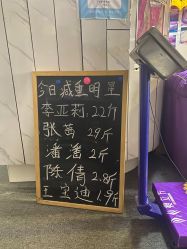 今日减重明星
李亚莉.22斤
张茜 29斤
潘潘 2斤
陈倩 2.8斤
王宝迪 1.9斤